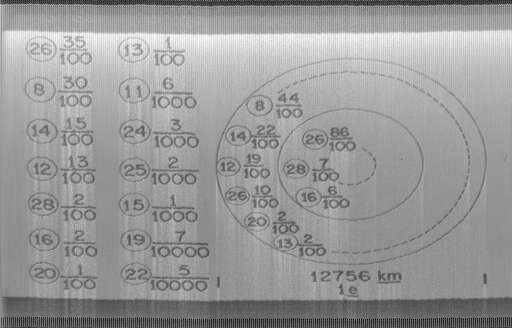 26 35/100
8 30/100
14 15/100
12 13/100
28 2/100
16 2/100
20 1/100
13 1/100
11 6/1000
24 3/1000
25 2/1000
15 1/1000
19 7/10000
22 5/10000
8 44/100
14 22/100
12 19/100
26 10/100
20 2/100
13 2/100
26 86/100
28 7/100
16 6/100
12756 km
1 e